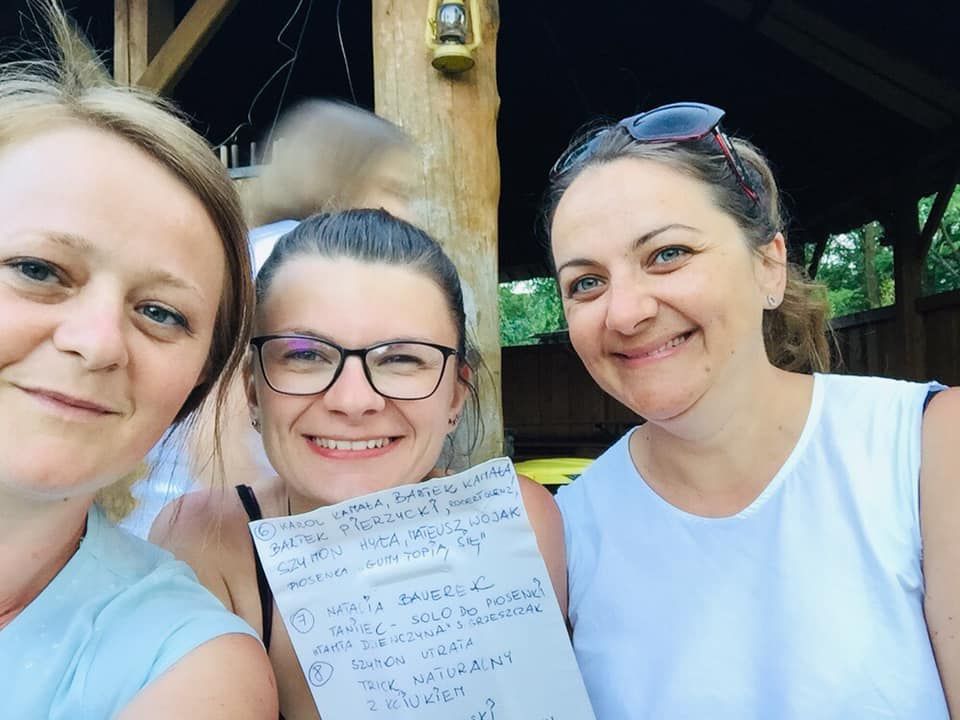 ⑥ KAROL KAMAŁA, BARTEK KAMAŁA
BARTEK PIERZYCKI, ROBERT
SZYMON HYŁA, MATEUSZ WÓJAK
PIOSENKA „GUMY TOPIĄ SIĘ"
⑦ NATALIA BAUEREK
TANIEC - SOLO DO PIOSENKI
„TAMTA DZIEWCZYNA" S. GRZESZCZAK
⑧ SZYMON UTRATA
TRICK NATURALNY
Z KCIUKIEM
SKI